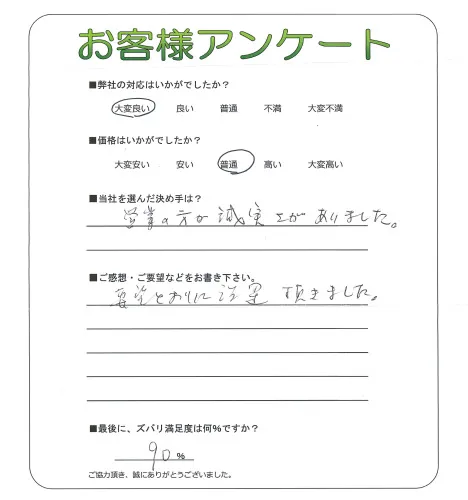 お客様アンケート
■弊社の対応はいかがでしたか？
大変良い 良い 普通 不満 大変不満
■価格はいかがでしたか？
大変安い 安い 普通 高い 大変高い
■当社を選んだ決め手は？
営業の方が誠実さがありました。
■ご感想・ご要望などをお書き下さい。
要望とおりに設置頂きました。
■最後に、ズバリ満足度は何%ですか？
90 %
ご協力頂き、誠にありがとうございました。